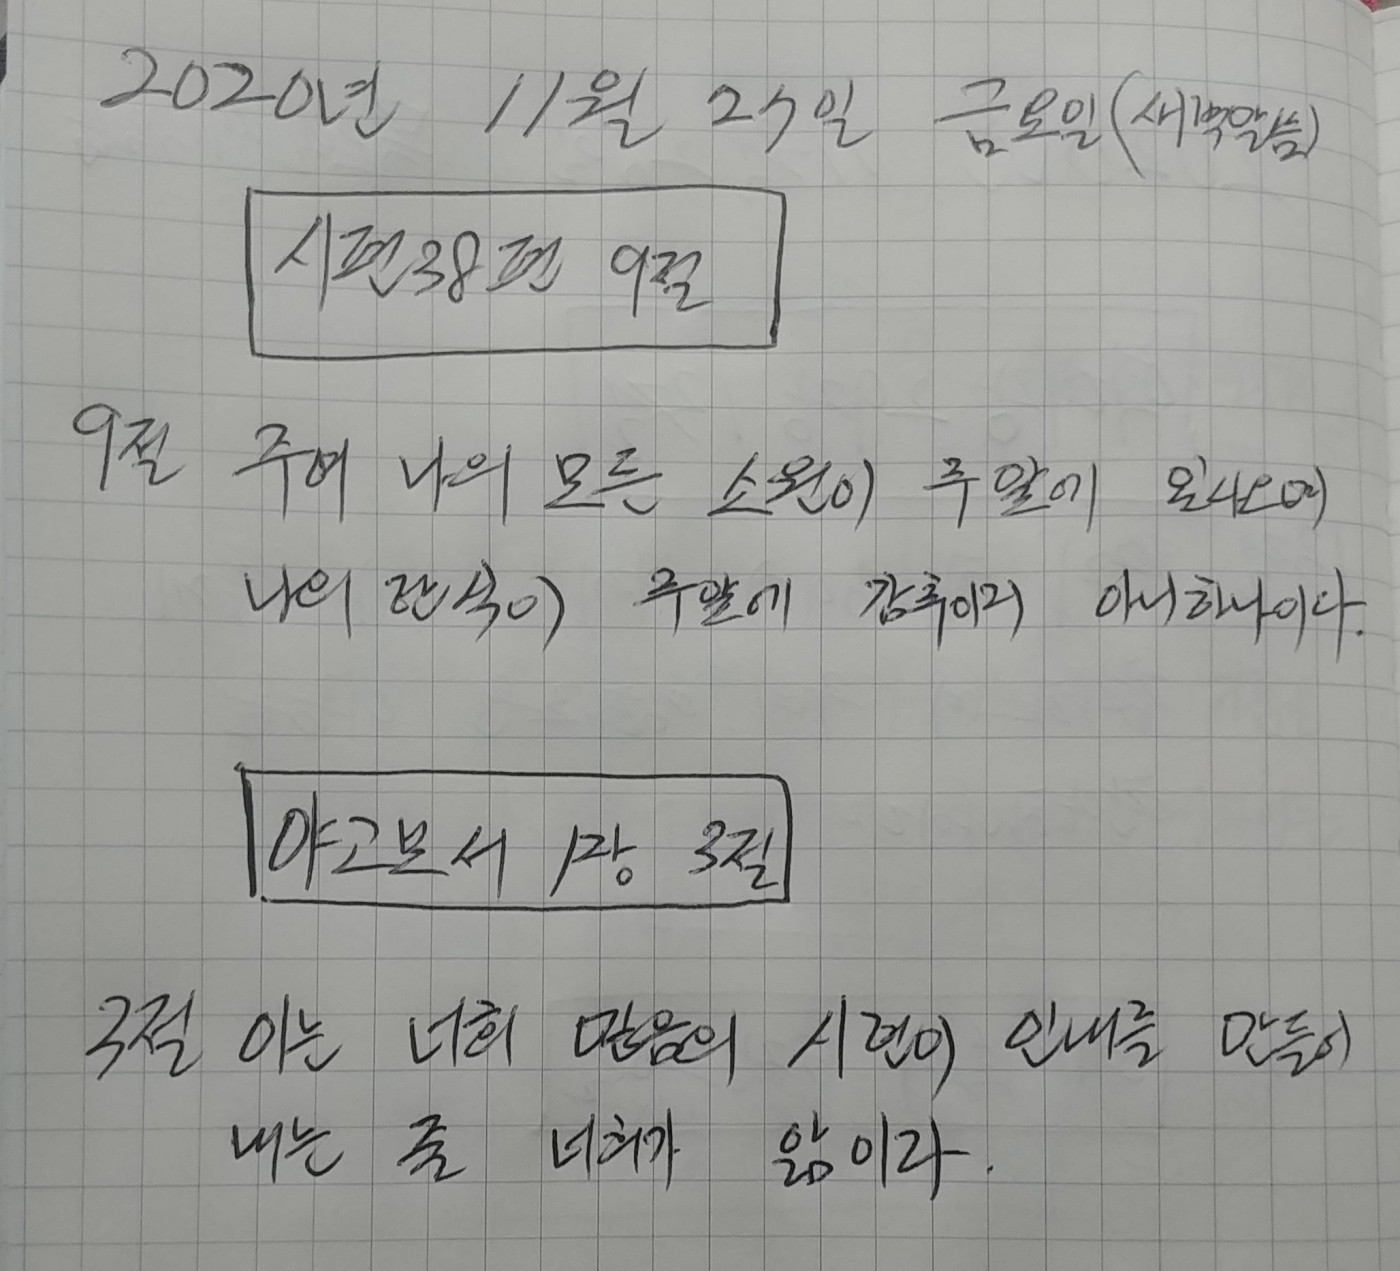 2020년 11월 27일 금요일(새벽말씀)
시편38편 9절
9절 주여 나의 모든 소원이 주 앞에 있사오며
나의 탄식이 주 앞에 감추이지 아니하나이다.
야고보서 1장 3절
3절 이는 너희 믿음의 시련이 인내를 만들어
내는 줄 너희가 앎이라.